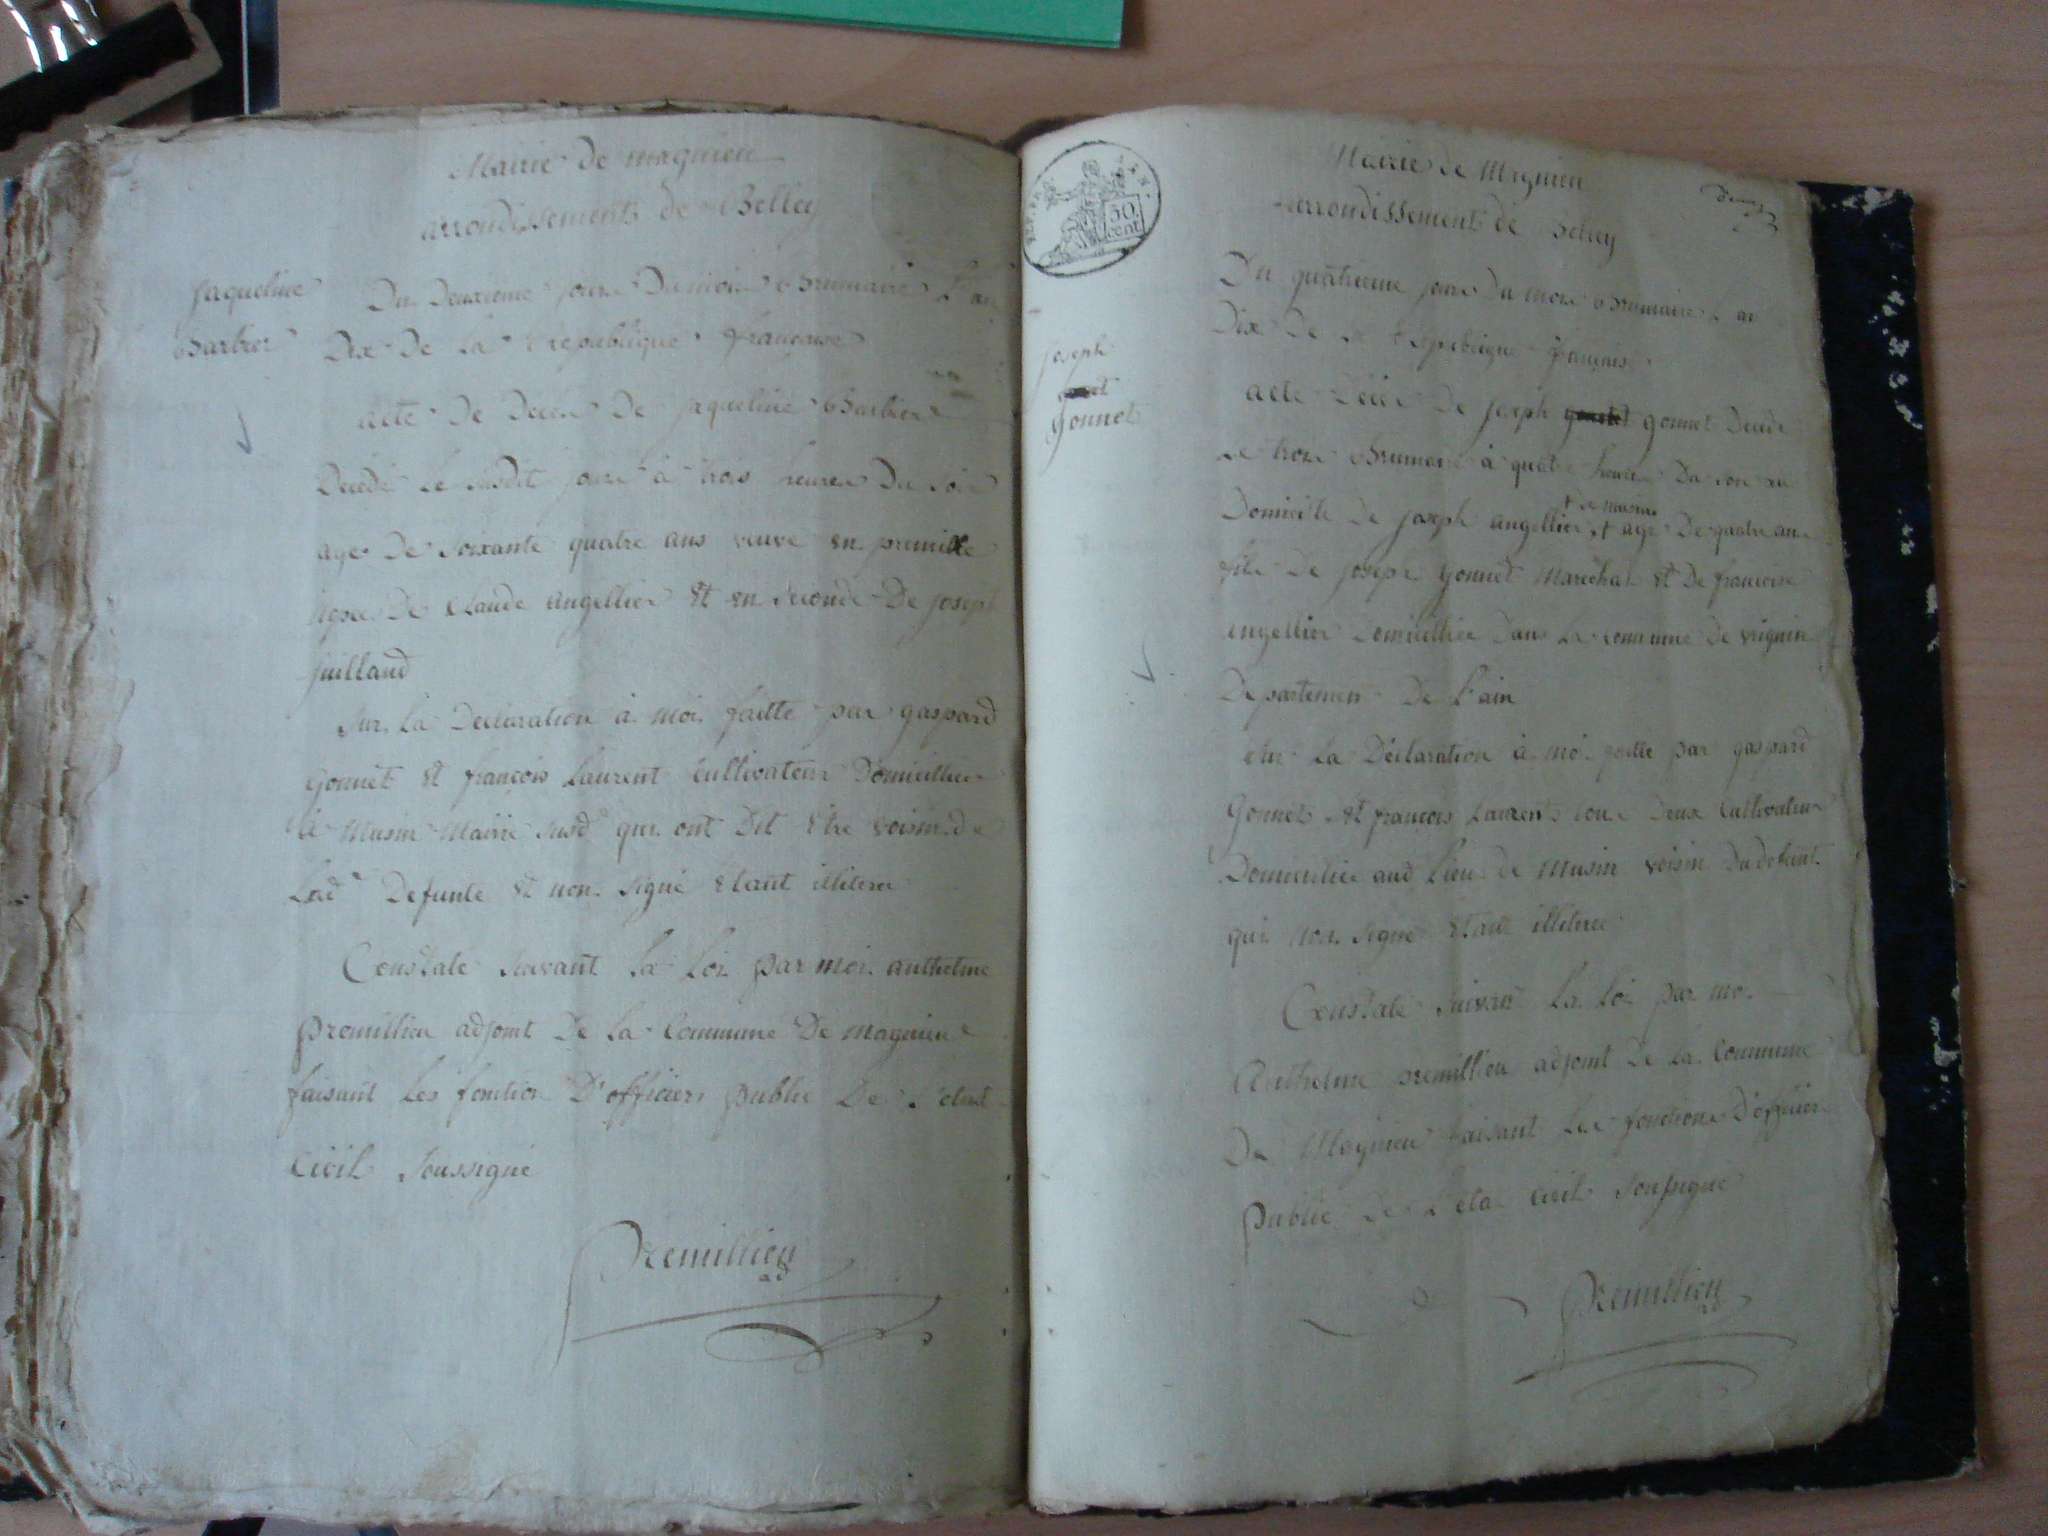 Mairie de magnieu
arrondissements de Belley
Jaqueline
Barbier
Du Deuxieme jour Du mois Brumaire L'an
Dix De La Republique française
acte De Deces De jaqueline Barbier
Decede le susdit jour à trois heures Du soir
age De soixante quatre ans veuve en premiere
De Claude angellier et en seconde De joseph
juilland
sur La Declaration à moi faitte par gaspard
gonnet et françois Laurent cultivateur Domicillier
à Musin Mairie susd^e qui ont Dit Etre voisin de
Lad^e Defunte et non signé Etant illitere
Constaté suivant la Loi par moi anthelme
premillieu adjoint De La Commune De magnieu
faisant Les fonction D'officier public De L'etat
Civil soussigné
Premillieu
ad
50
cent
Mairie de Magnieu
arrondissements de Belley
Joseph
gonnet
Du quatrieme jour Du mois Brumaire L'an
Dix De La Republique français
acte Deces De joseph gonnet Decede
Le trois Brumaire à quatre heures Du soir au
+ de musin
Domicile De joseph angellier, + age De quatre ans
fils De joseph gonnet Maréchal et De françoise
angellier Domicillier Dans La commune De virignin
Departement De L'ain
sur La Déclaration à moi faitte par gaspard
Gonnet et françois Laurent tous Deux cultivateur
Domicilier aud Lieu de Musin voisin Du defunt
qui non signé Etant illitere
Constaté suivant La Loi par moi
Anthelme premillieu adjoint De La Commune
De Magnieu faisant Les fonctions D'officier
public De L'etat Civil soussigné
Premillieu
ad